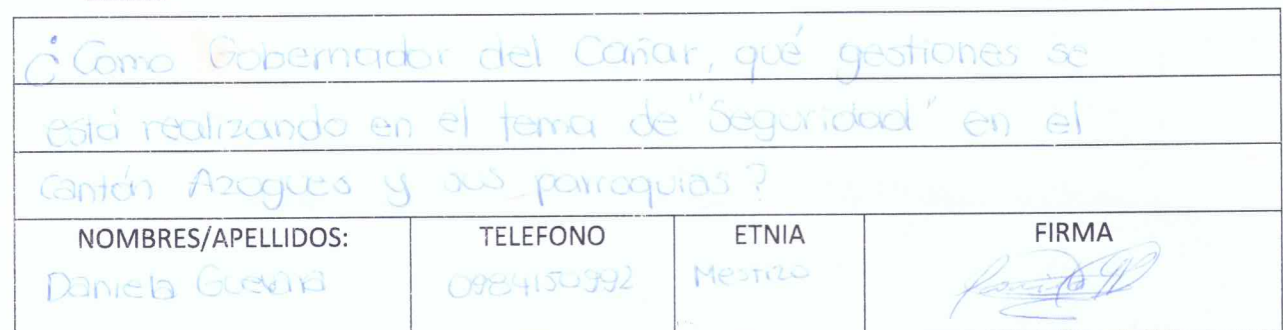 ¿Como Gobernador del Cañar, qué gestiones se
está realizando en el tema de "Seguridad" en el
Cantón Azogues y sus parroquias?
NOMBRES/APELLIDOS: TELEFONO ETNIA FIRMA
Daniela Guevara 0984150992 Mestizo